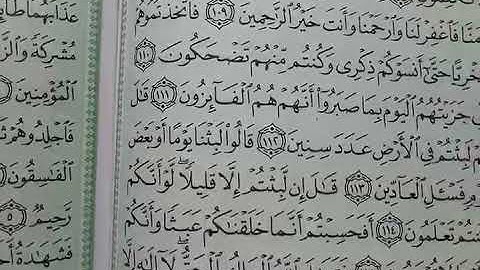 فَاغْفِرْ لَنَا وَارْحَمْنَا وَأَنتَ خَيْرُ الرَّاحِمِينَ ١٠٩ فَاتَّخَذْتُمُوهُمْ
حَتَّىٰ أَنسَوْكُمْ ذِكْرِي وَكُنتُم مِّنْهُمْ تَضْحَكُونَ ١١٠
جَزَيْتُهُمُ الْيَوْمَ بِمَا صَبَرُوا أَنَّهُمْ هُمُ الْفَائِزُونَ ١١١ قَالَ
لَبِثْتُمْ فِي الْأَرْضِ عَدَدَ سِنِينَ ١١٢ قَالُوا لَبِثْنَا يَوْمًا أَوْ بَعْضَ
فَسْـَٔلِ الْعَادِّينَ ١١٣ قَالَ إِن لَّبِثْتُمْ إِلَّا قَلِيلًا لَّوْ أَنَّكُمْ
تَعْلَمُونَ ١١٤ أَفَحَسِبْتُمْ أَنَّمَا خَلَقْنَاكُمْ عَبَثًا وَأَنَّكُمْ
عَذَابَهُمَا
مُشْرِكَةً
الْمُؤْمِنِينَ
فَاجْلِدُوهُمْ
الْفَاسِقُونَ
رَحِيمٌ ٥
فَشَهَادَةُ